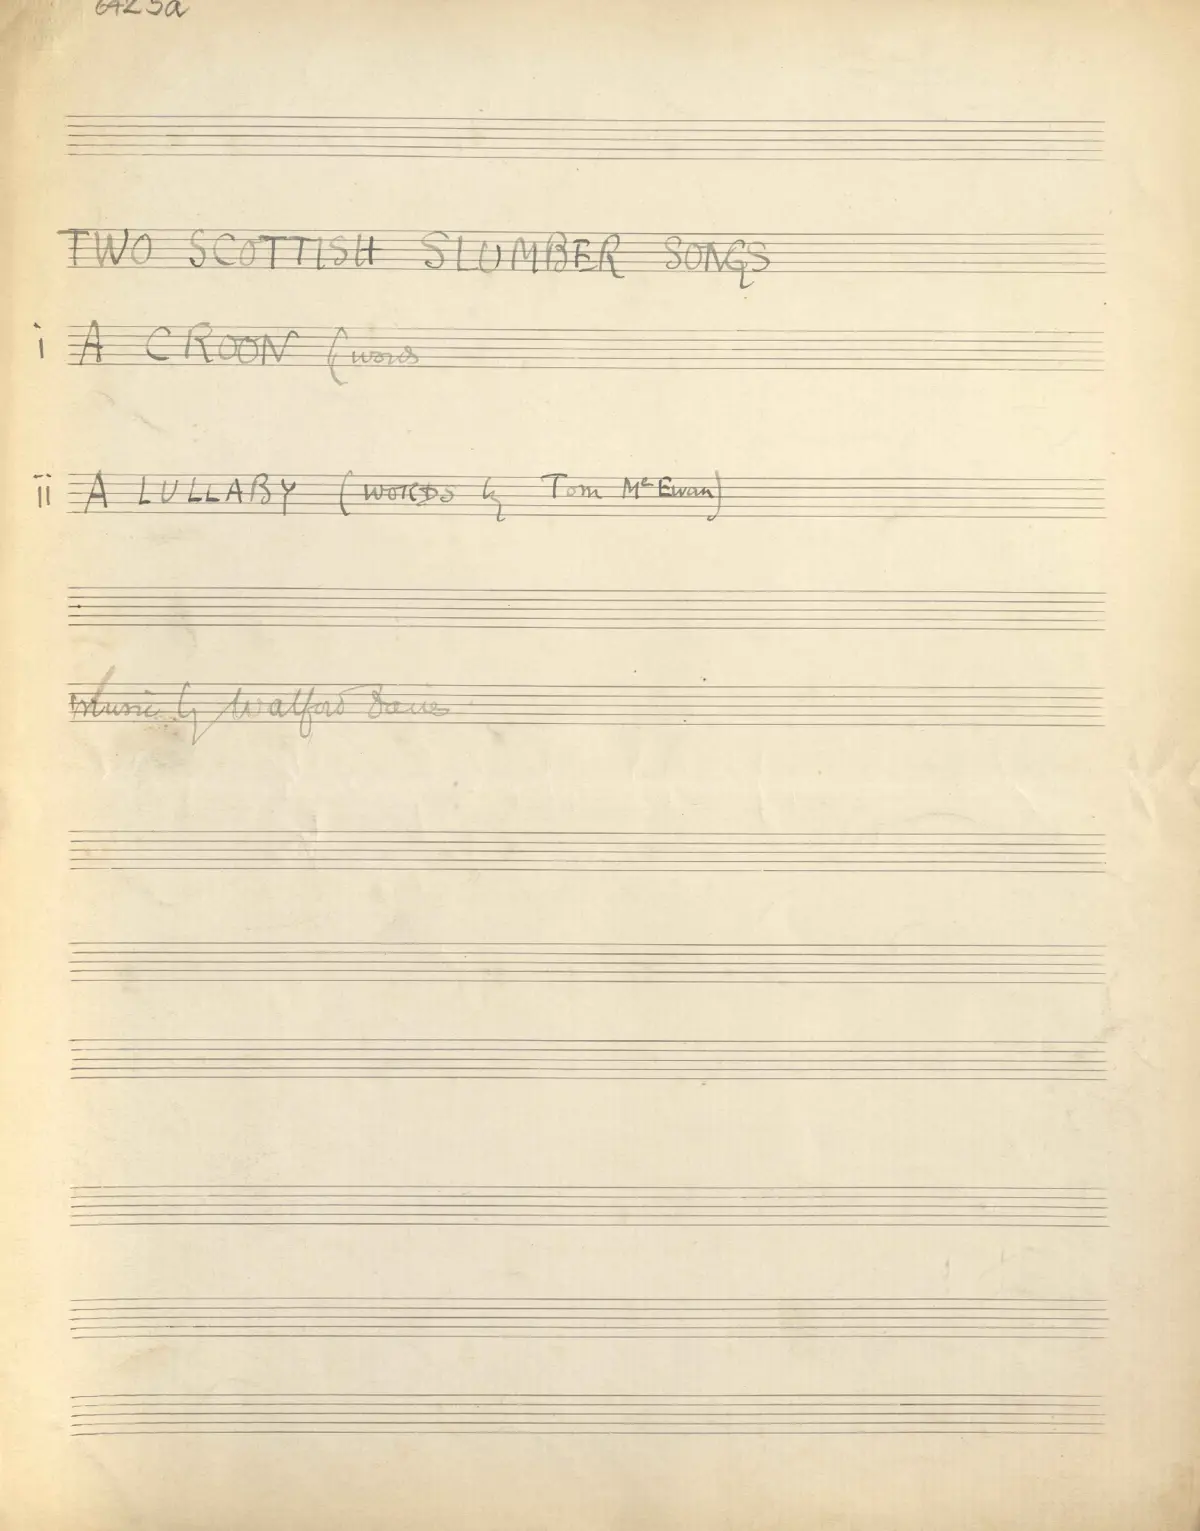 6425a
TWO SCOTTISH SLUMBER SONGS
i A CROON (words
ii A LULLABY (WORDS by Tom McEwan)
Music by Walford Davies